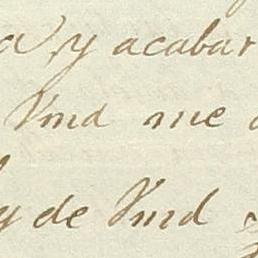 y acabar
Vmd me
y de Vmd